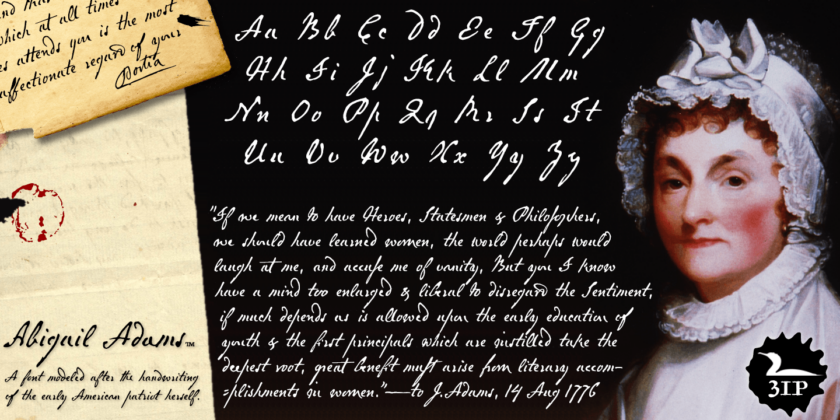 and that
which at all times
es attends you is the most
affectionate regard of your
Portia
Aa Bb Cc Dd Ee Ff Gg
Hh Ii Jj Kk Ll Mm
Nn Oo Pp Qq Rr Ss Tt
Uu Vv Ww Xx Yy Zz
"If we mean to have Heroes, Statesmen & Philosophers,
we should have learned women, the world perhaps would
laugh at me, and accuse me of vanity, But you I know
have a mind too enlarged & liberal to disregard the Sentiment,
if much depends as is allowed upon the early education of
youth & the first principals which are instilled take the
deepest root, great benefit must arise from literary accom-
=plishments in women."—to J.Adams, 14 Aug 1776
Abigail Adams™
A font modeled after the handwriting
of the early American patriot herself.
3IP